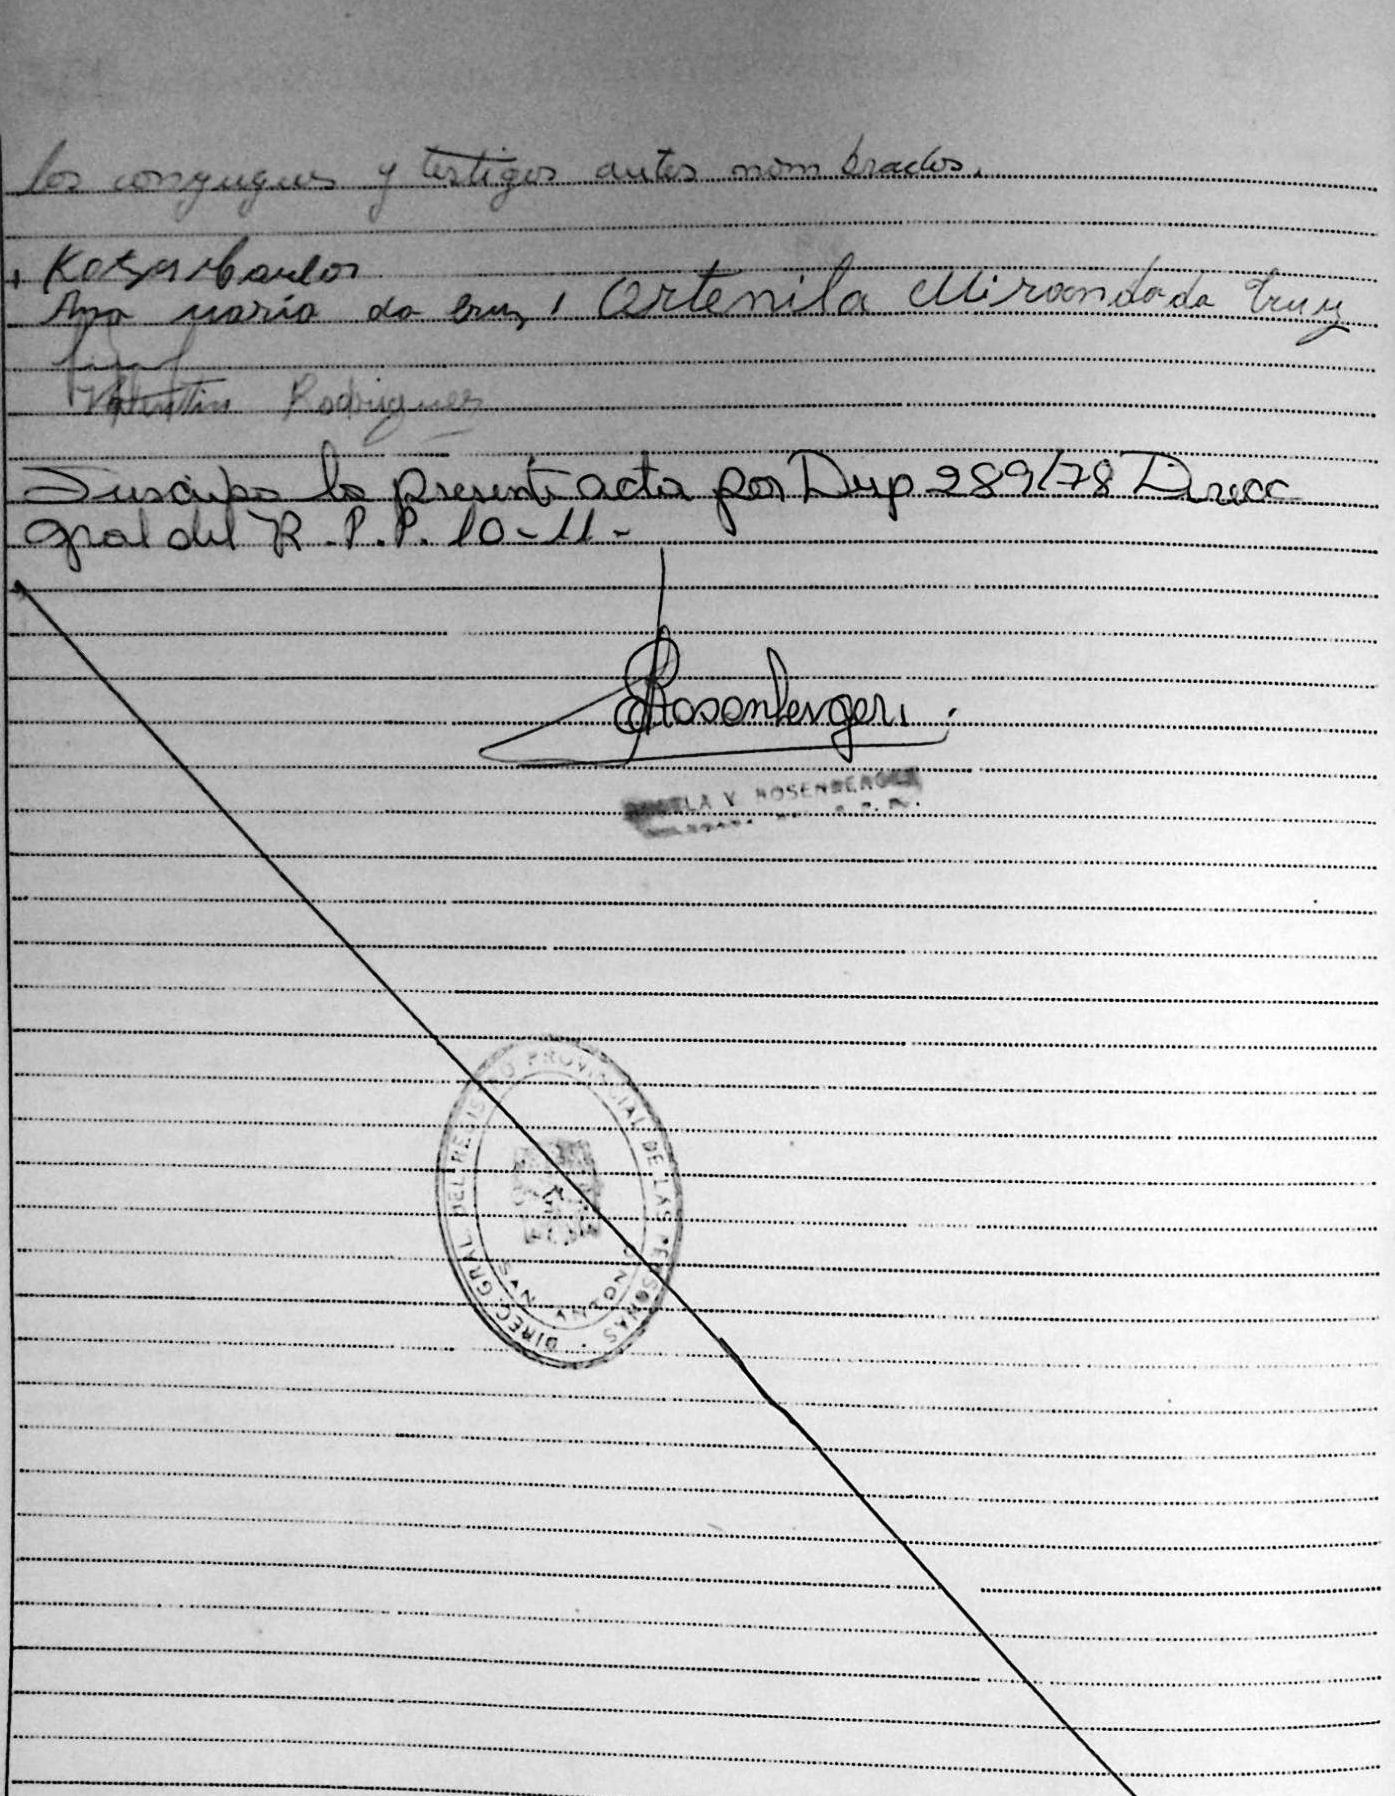 los conyugues y testigos antes nombrados.
Carlos
Ana maria da Cruz, Ortenila Miranda da Cruz
Valentin Rodriguez
Suscribo la presente acta por Dup 289/78 Direcc
Gral del R.P.P. 10-11-
Rosenberger
V. ROSENBERGER
DIREC. GRAL. DEL REGISTRO PROVINCIAL DE LAS PERSONAS
SAN ANTONIO